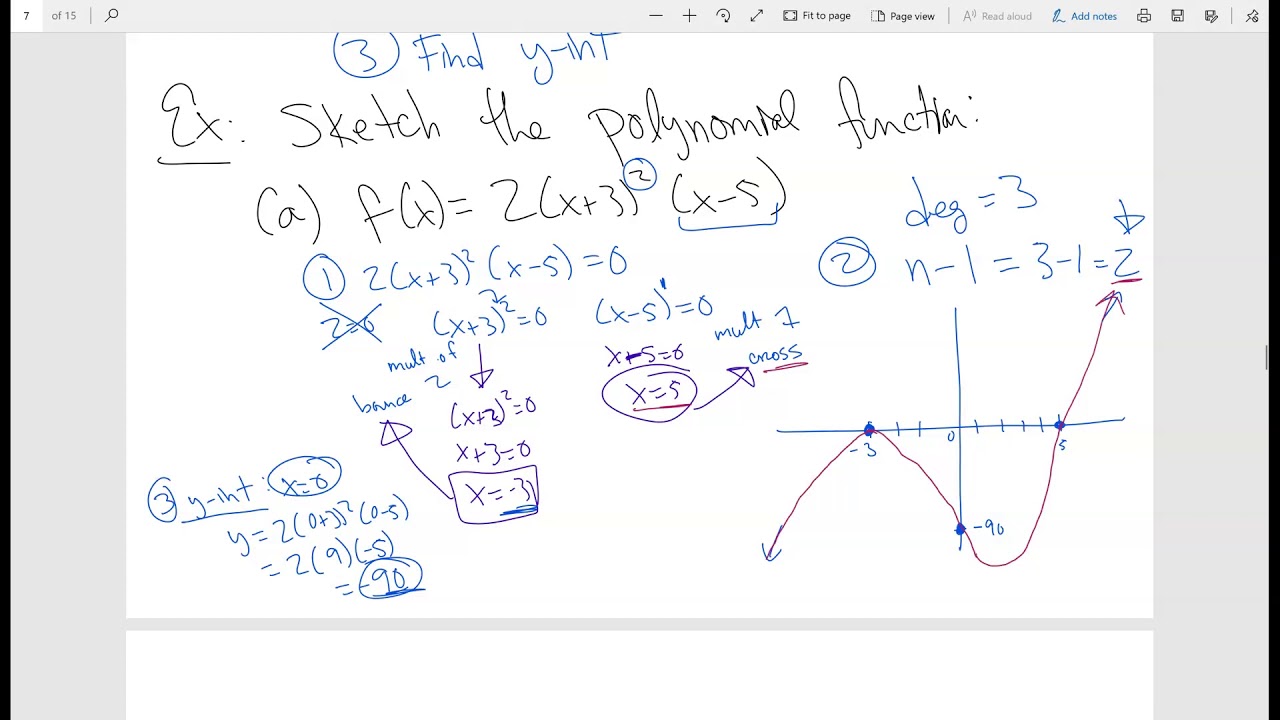 7 of 15 Fit to page Page view Read aloud Add notes
③ Find y-int
Ex: Sketch the polynomial function:
(a) f(x) = 2(x+3)² (x-5)
deg = 3
① 2(x+3)² (x-5) = 0
② n-1 = 3-1 = 2
2=0 (x+3)²=0 (x-5)¹=0
mult of 2
bounce
(x+3)²=0
x+3=0
x=-3
x-5=0
x=5
mult 1
cross
③ y-int: x=0
y = 2(0+3)² (0-5)
= 2(9)(-5)
= -90
-3 0 5
-90